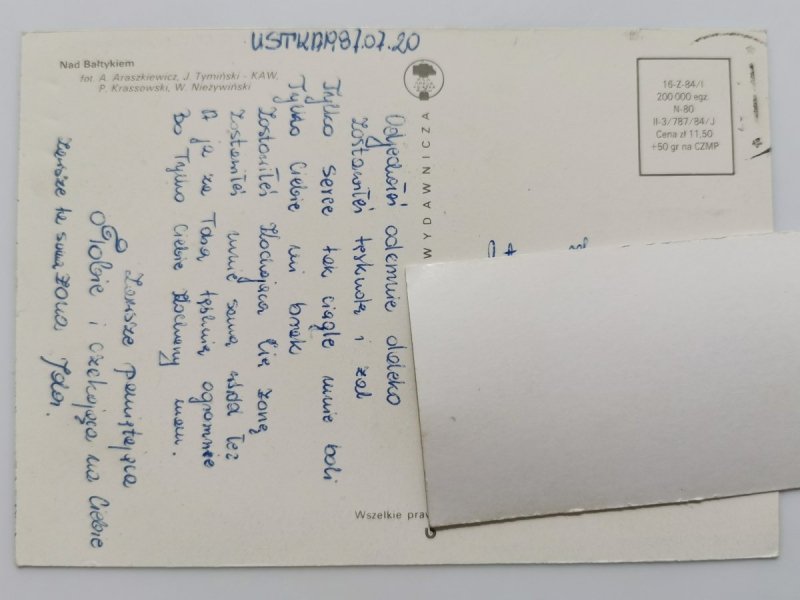 USTKA 1987.07.20
Nad Bałtykiem
fot. A. Araszkiewicz, J. Tymiński - KAW,
P. Krassowski, W. Nieżywiński
Odjechałeś odemnie daleko
Zostawiłeś tęsknotę i żal
Tylko serce tak ciągle mnie boli
Tylko Ciebie mi brak
Zostawiłeś kochającą Cię żonę
Zostawiłeś mnie samą wśód łez
A ja za Tobą tęsknię ogromnie
Bo Tylko Ciebie Kochany mam.
Zawsze pamiętająca
o Tobie i czekająca na Ciebie
zawsze ta sama żona
WYDAWNICZA
16-Z-84/I
200 000 egz.
N-80
II-3/787/84/J
Cena zł 11,50
+50 gr na CZMP
Wszelkie